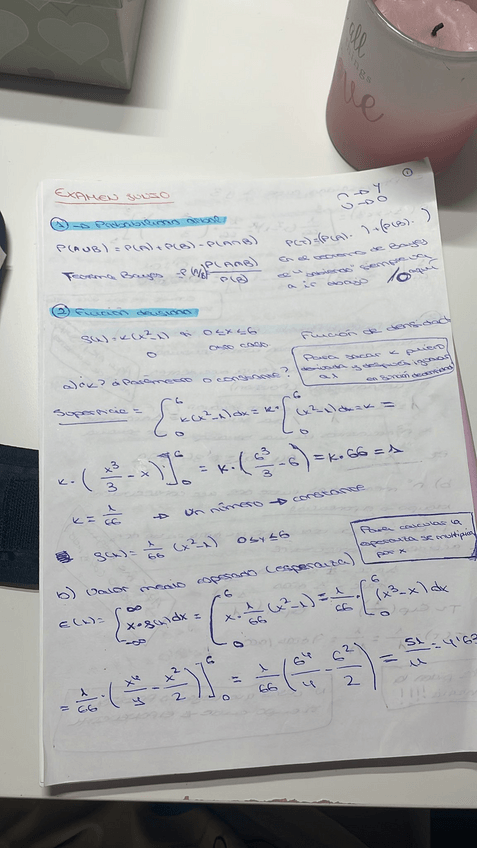 ①
EXAMEN JULIO
∩ → Y
U → O
① → Probabilidad
P(A∪B) = P(A) + P(B) - P(A∩B)
P(T) = (P(A)· ) + (P(B)· )
Teorema Bayes → P(A/B) P(A∩B)/P(B)
En el teorema de Bayes
el "  " siempre va
a ir abajo /○ aquí
② Función densidad
f(x) = k(x²-1) si 0≤x≤6
0 caso
Función de densidad
Para sacar k primero
derivada y después igualar
a 1
a) ¿k? ¿Parámetro o constante?
Superficie = ∫₀⁶ k(x²-1)dx = k· ∫₀⁶ (x²-1)dx = k =
k · (x³/3 - x)]₀⁶ = k · (6³/3 - 6) = k·66 = 1
k = 1/66 → un número → constante
f(x) = 1/66 (x²-1) 0≤x≤6
Para calcular la
esperanza se multiplica
por x
b) Valor medio esperado (esperanza)
E(x) = ∫ x·f(x)dx = ∫₀⁶ x · 1/66 (x²-1) = 1/66 · ∫₀⁶ (x³-x)dx
= 1/66 · (x⁴/4 - x²/2)]₀⁶ = 1/66 (6⁴/4 - 6²/2) = 51/11 = 4'63